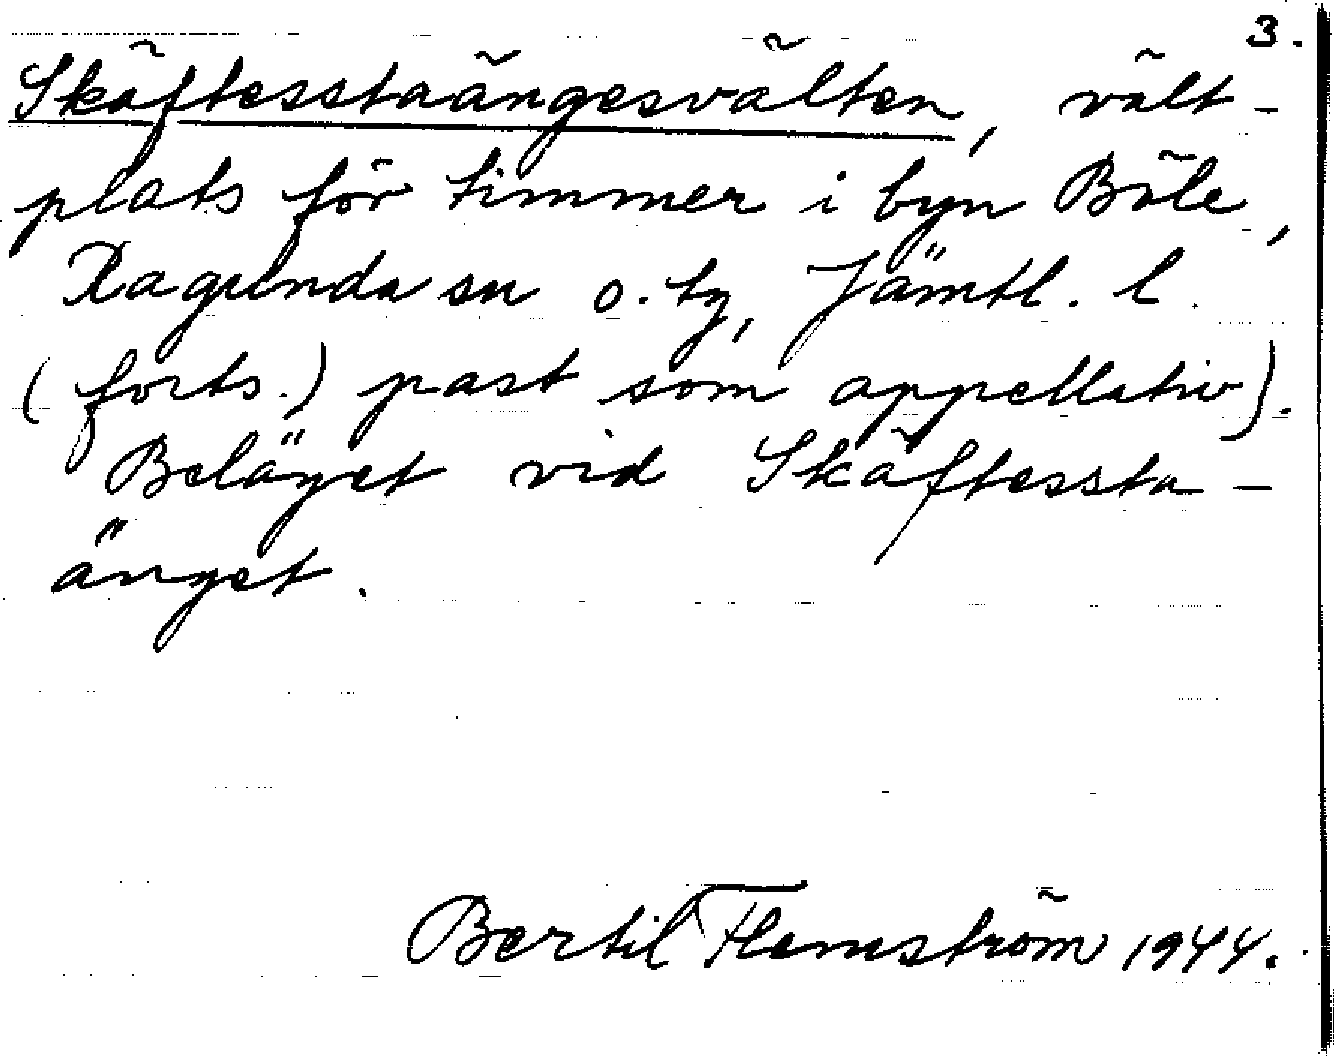 3.
Skäftesstaängesvälten, vält-
plats för timmer i byn Böle,
Ragunda sn o. tg, Jämtl. l.
(forts.) past som appellativ).
Beläget vid Skäftessta-
änget.
Bertil Flemström 1944.